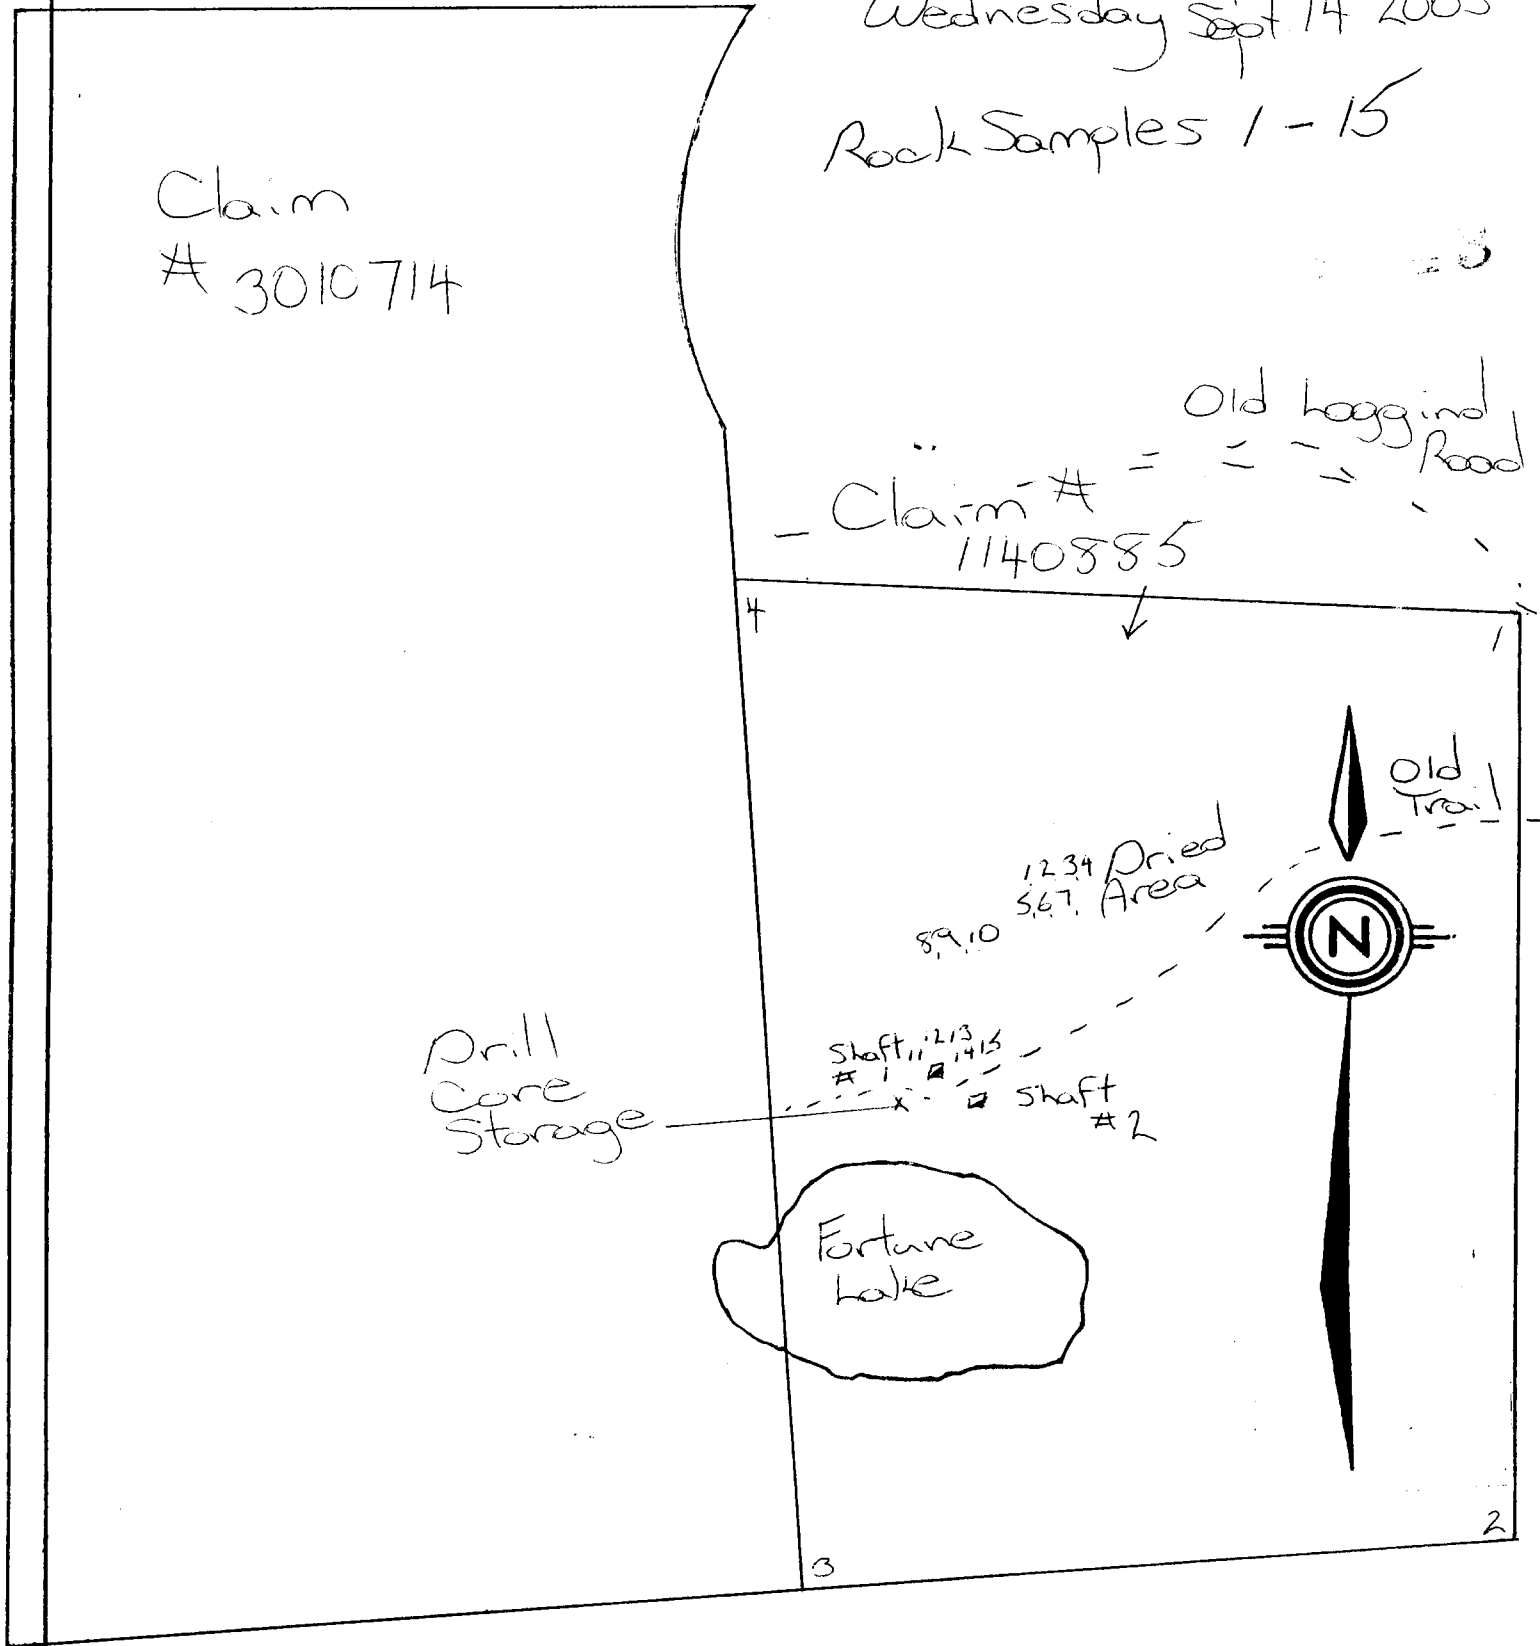 Wednesday Sept. 14 2005
Rock Samples 1 - 15
Claim
# 3010714
Old Loggind
Road
Claim #
1140885
4
1
Old
Trail
1234 Dried
5,6,7, Area
8,9,10
N
Drill
Core
Storage
Shaft 11 12 13
# 1 14 15
Shaft
# 2
Fortune
Lake
2
3